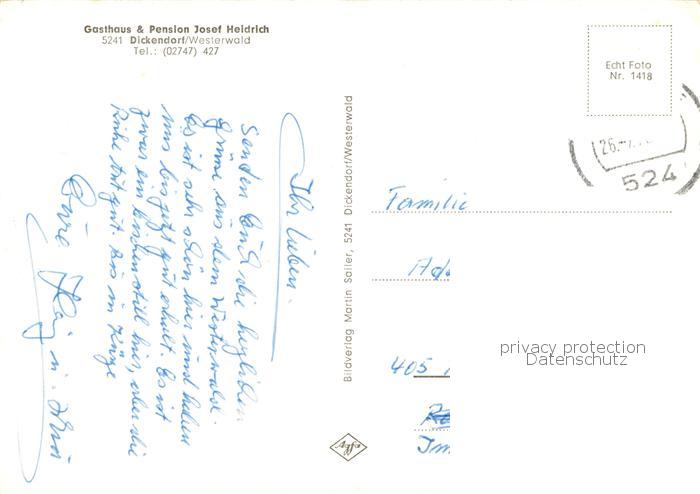 Gasthaus & Pension Josef Heidrich
5241 Dickendorf/Westerwald
Tel.: (02747) 427
Ihr Lieben.
Senden Euch die herzlichen
Grüße aus dem Westerwald.
Es ist sehr schön hier und haben
uns bis jetzt gut erholt. Es ist
zwar ein bischen still hier, aber die
Ruhe tut gut. Bis in Kürze
Eure
Bildverlag Martin Sailer, 5241 Dickendorf/Westerwald
Agfa
Echt Foto
Nr. 1418
26.
524
Familie
Ad
405
privacy protection
Datenschutz